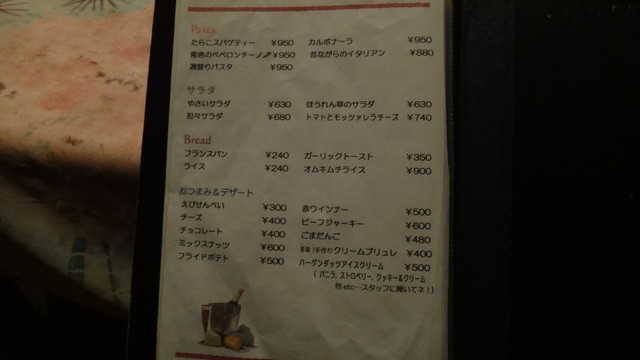 Pasta
たらこスパゲティー ¥950 カルボナーラ ¥950
ペペロンチーノ ¥950 昔ながらのイタリアン ¥880
週替りパスタ ¥950
サラダ
やさいサラダ ¥630 ほうれん草のサラダ ¥630
担々サラダ ¥680 トマトとモッツァレラチーズ ¥740
Bread
フランスパン ¥240 ガーリックトースト ¥350
ライス ¥240 オムキムチライス ¥900
おつまみ＆デザート
えびせんべい ¥300 赤ウインナー ¥500
チーズ ¥400 ビーフジャーキー ¥600
チョコレート ¥400 ごまだんご ¥480
ミックスナッツ ¥600 手作りクリームブリュレ ¥400
フライドポテト ¥500 ハーゲンダッツアイスクリーム ¥500
(バニラ,ストロベリー,クッキー&クリーム
他etc…スタッフに聞いてネ!)